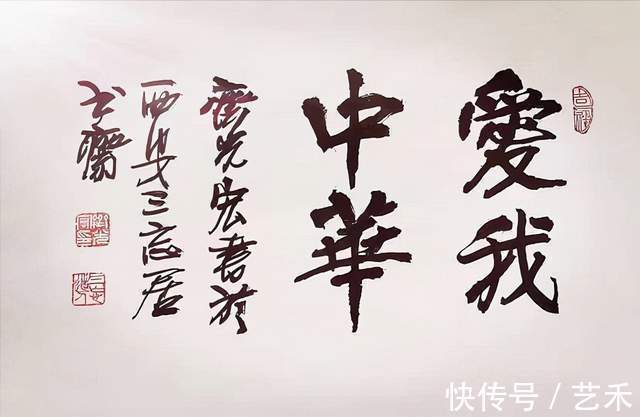 愛我
中華
齊光宏書於
西安三忘居
书齋
快传号／艺禾